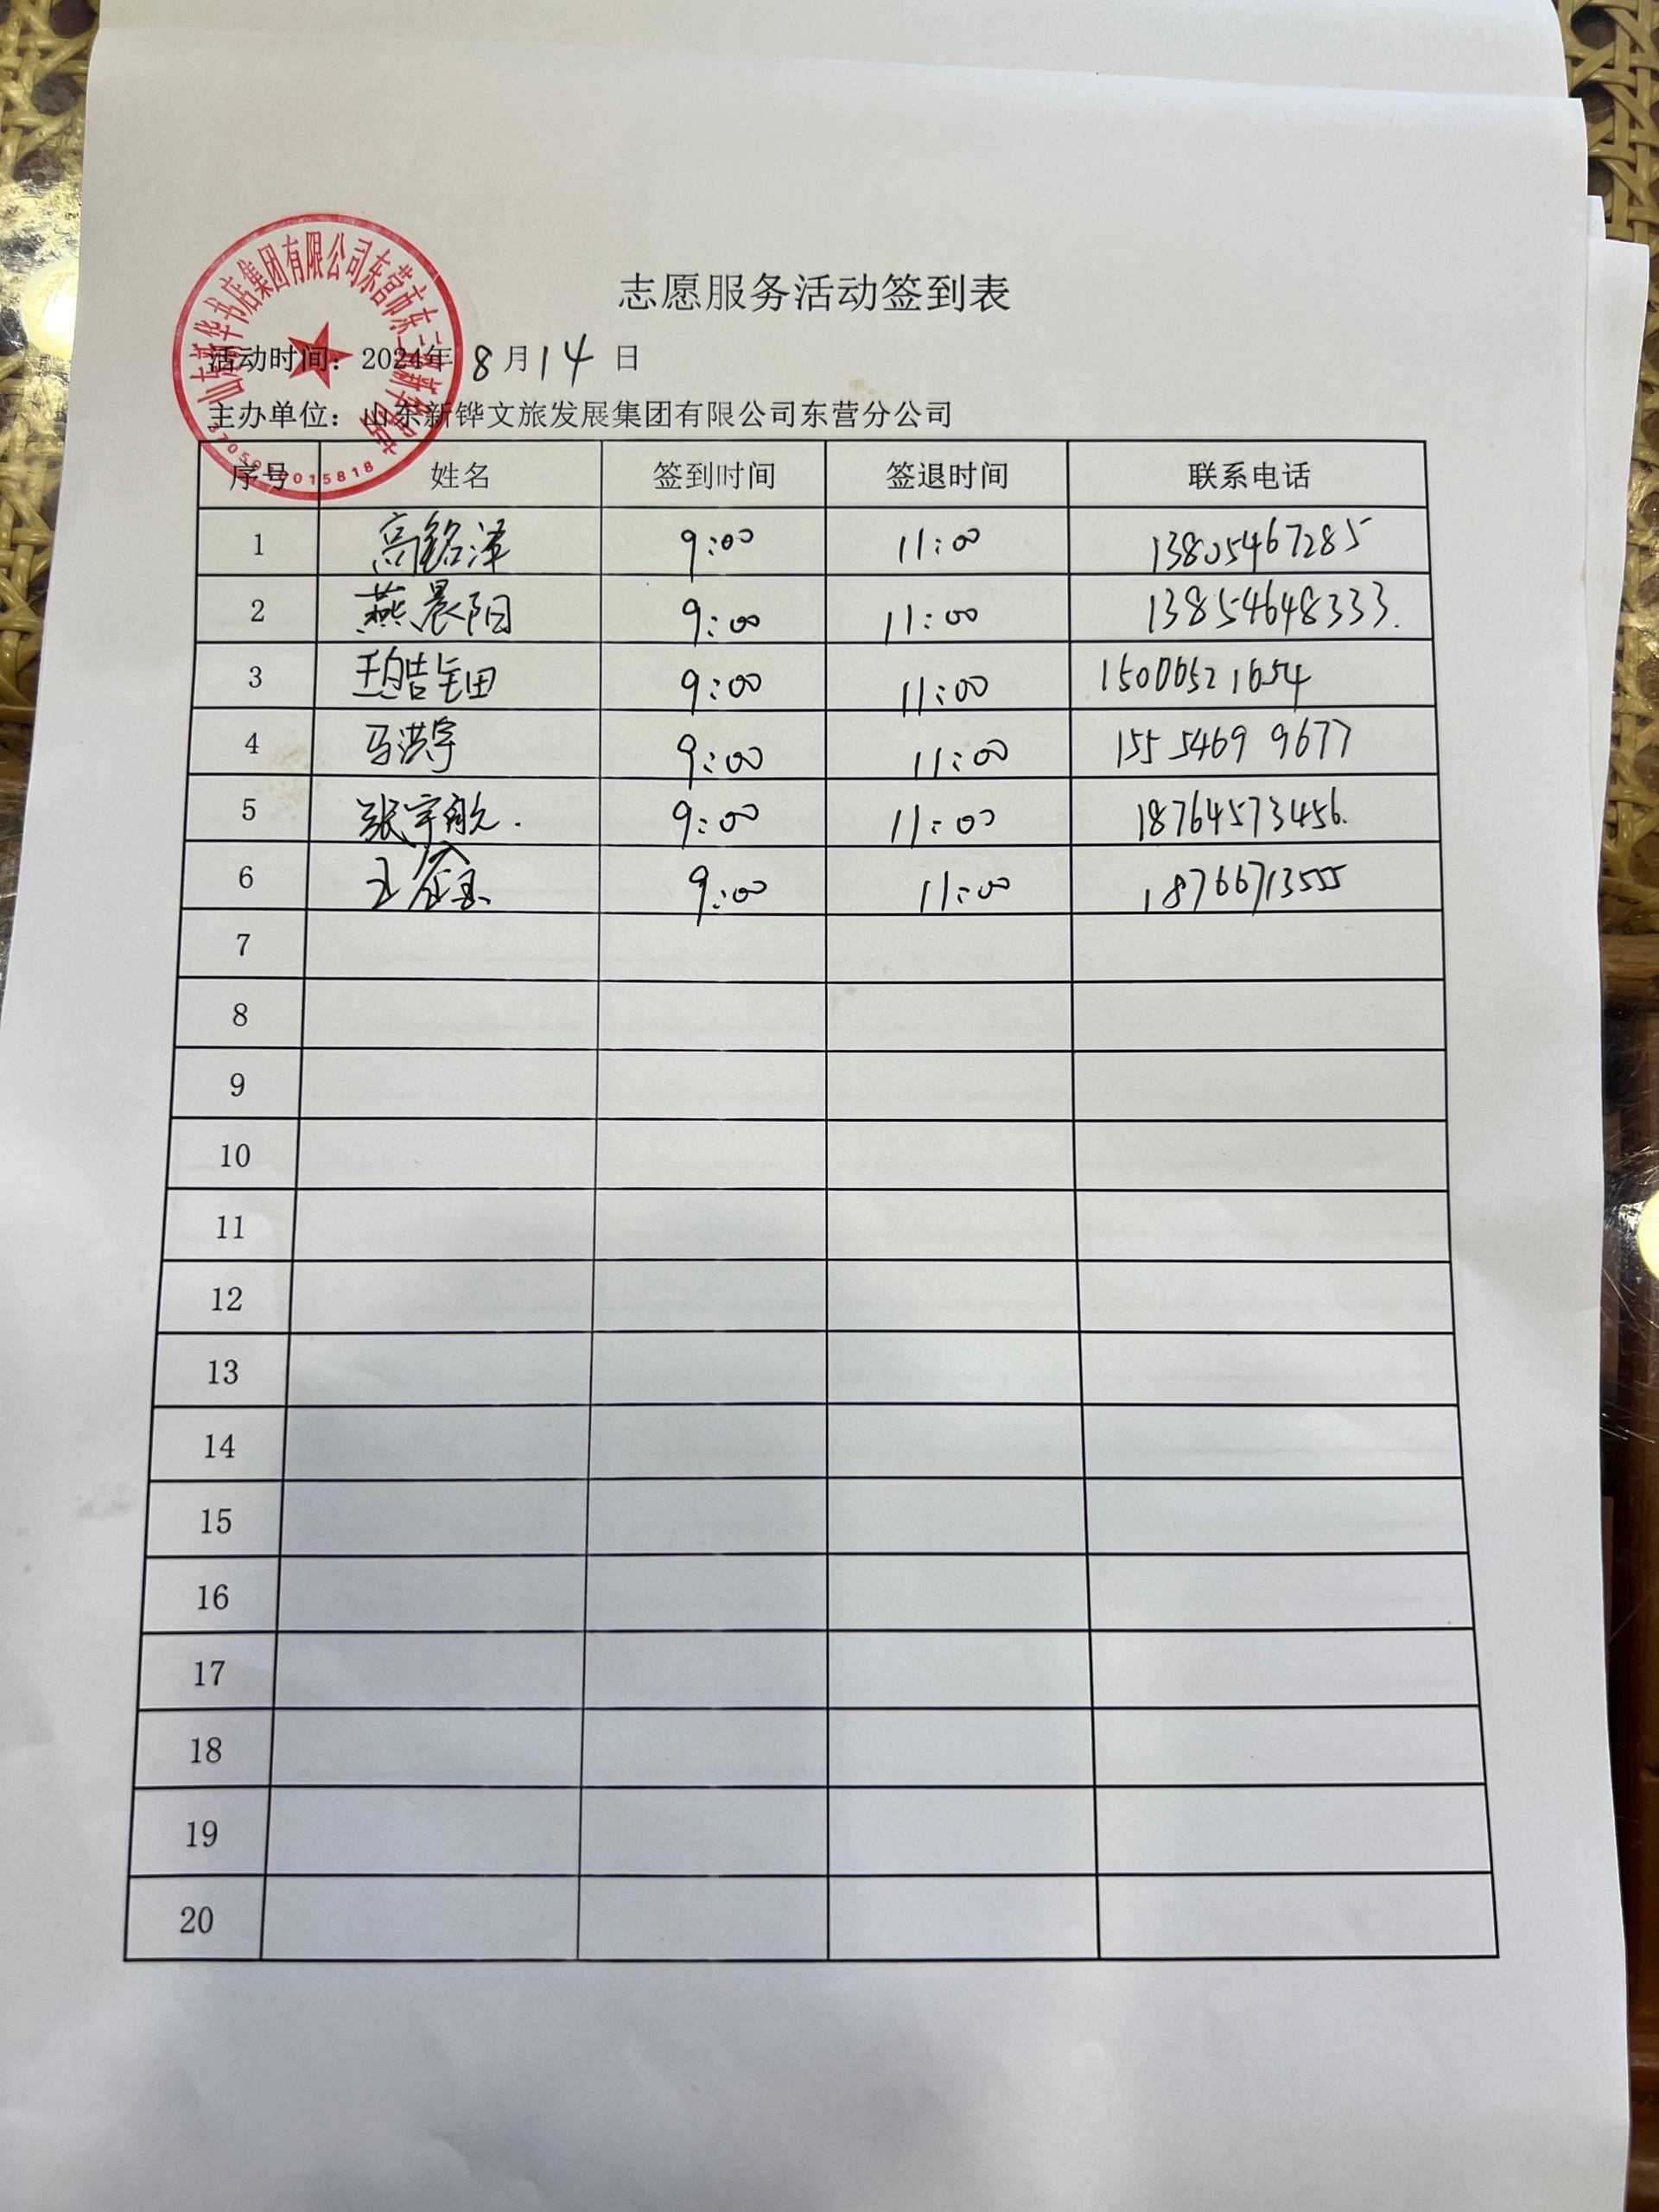 山东新华书店集团有限公司东营市东三路新华书店
志愿服务活动签到表
活动时间：2024年 8 月 14 日
主办单位：山东新铧文旅发展集团有限公司东营分公司
序号 姓名 签到时间 签退时间 联系电话
1 高铭泽 9:00 11:00 13805467285
2 燕晨阳 9:00 11:00 13854648333.
3 9:00 11:00 15006521654
4 马洪宇 9:00 11:00 155 5469 9677
5 张宇航. 9:00 11:00 18764573456.
6 王 9:00 11:00 18766713555
7
8
9
10
11
12
13
14
15
16
17
18
19
20